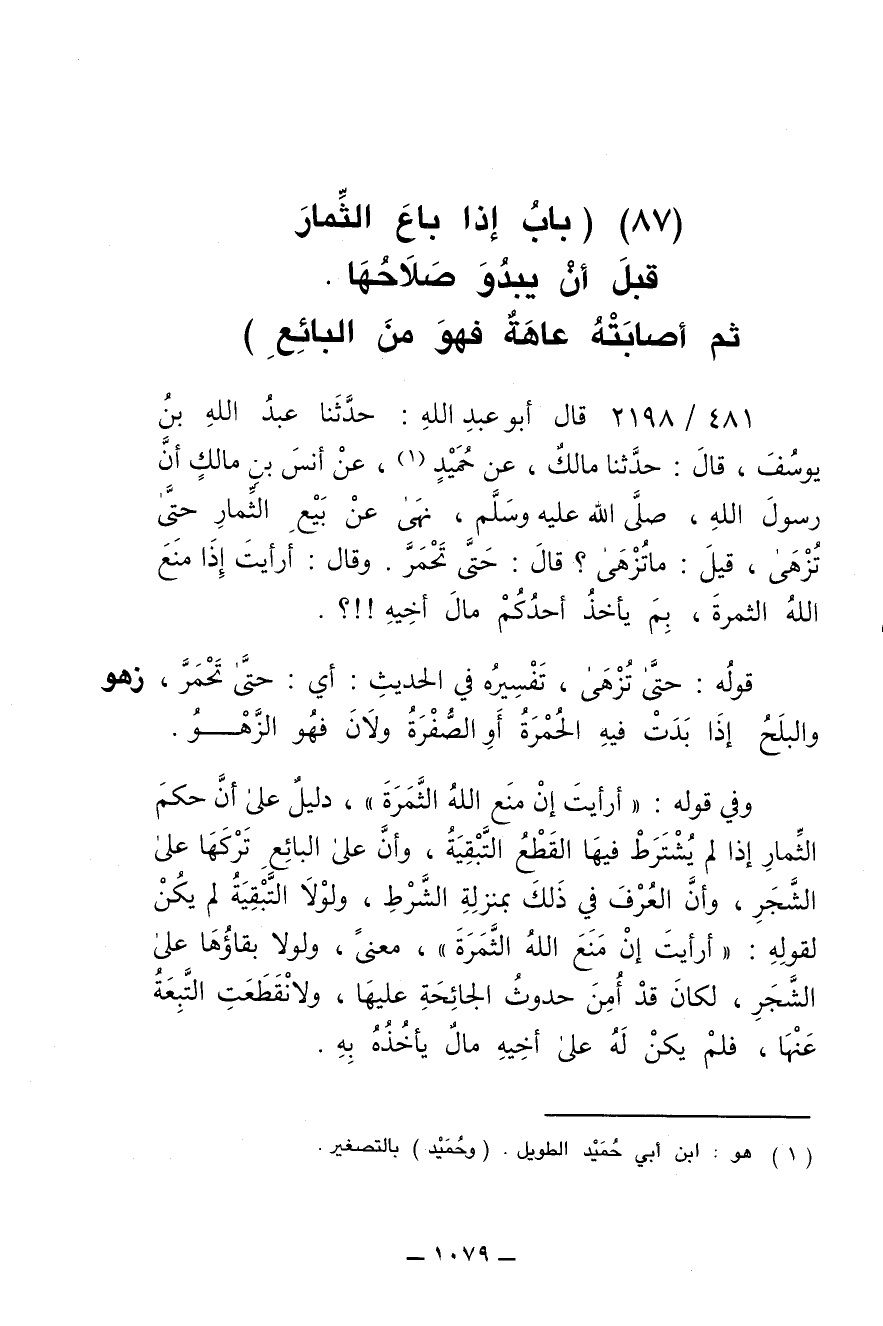 (٨٧) ( بابُ إذا باعَ الثِّمارَ
قبلَ أنْ يبدُوَ صَلَاحُهَا .
ثم أصابَتْهُ عاهَةٌ فهوَ منَ البائِعِ )
٤٨١ / ٢١٩٨ قال أبو عبدِ اللهِ : حدَّثَنا عبدُ اللهِ بنُ
يوسُفَ ، قالَ : حدَّثنا مالكٌ ، عن حُمَيْدٍ (١) ، عنْ أنسَ بنِ مالكٍ أنَّ
رسولَ اللهِ ، صلَّى الله عليه وسَلَّم ، نهَىٰ عنْ بَيْعِ الثِّمارِ حتىَّٰ
تُزْهَىٰ ، قيلَ : ماتُزْهَىٰ ؟ قالَ : حَتىَّ تَحْمَرَّ . وقال : أرأيتَ إِذَا منَعَ
اللهُ الثمرةَ ، بِمَ يأخذُ أحدُكُمْ مالَ أخِيهِ !!؟ .
قولُه : حتىَّٰ تُزْهَىٰ ، تَفْسِيرُه في الحديثِ : أي : حتىَّٰ تَحْمَرَّ ، زهو
والبلَحُ إذَا بَدَتْ فيهِ الحُمْرَةُ أَوِ الصُّفْرَةُ ولَانَ فهُو الزَّهْـــوُ .
وفي قوله : « أرأيتَ إنْ منَع اللهُ الثَّمَرَةَ » ، دليلٌ علىٰ أنَّ حكمَ
الثِّمارِ إذا لم يُشْتَرَطْ فيهَا القَطْعُ التَّبْقِيَةُ ، وأنَّ علىٰ البائعِ تَرْكَهَا علىٰ
الشَّجَرِ ، وأنَّ العُرْفَ في ذَلكَ بمنزلةِ الشَّرْطِ ، ولوْلَا التَّبْقِيَةُ لم يكُنْ
لقولِهِ : « أرأيتَ إنْ مَنَعَ اللهُ الثَّمَرَةَ » ، معنىً ، ولولا بقاؤُهَا علىٰ
الشَّجَرِ ، لكانَ قدْ أُمِنَ حدوثُ الجائِحَةِ عليهَا ، ولانْقَطَعَتِ التَّبِعَةُ
عَنْهَا ، فلمْ يكنْ لَهُ علىٰ أخيهِ مالٌ يأخُذُهُ بِهِ .
(١) هو : ابن أبي حُمَيْد الطويل . ( وحُمَيْد ) بالتصغير .
ـ ١٠٧٩ ـ